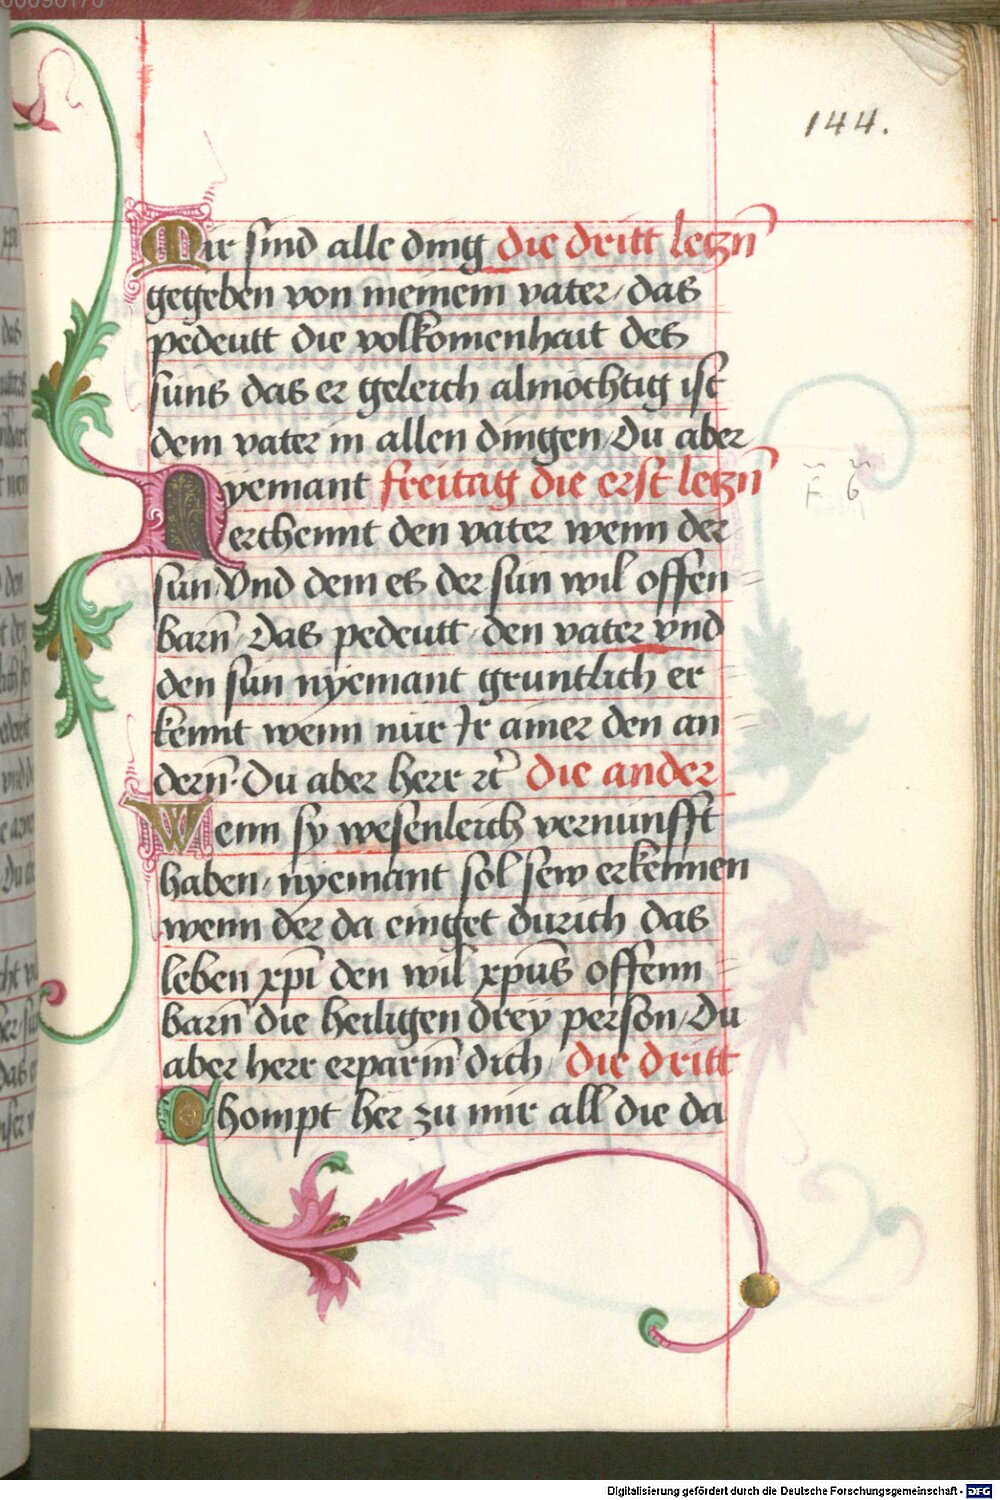 144.
Mir sind alle ding die dritt letzn̄
gegeben von meinem vater / das
pedeutt die volkomenhait des
suns das er geleich almöchtig ist
dem vater in allen dingen / Du aber
Nyemant freitag die erst letzn̄
erchennt den vater wenn der
sun / Vnd dem es der sün wil offen
barn̄ / Das pedeutt / den vater vnd
den sün nyemant gruntlich er
kennt wenn nür Ir ainer den an
dern̄ · Du aber herr ꝛc̄ die ander
Wenn sy wesenleich vernunfft
haben / nyemant sol sew erkennen
wenn der da einget durich das
leben xp̄i den wil xp̄us offenn
barn̄ die heiligen drey person / Du
aber herr erparm̄ dich / die dritt
Chompt her zu mir all die da
Digitalisierung gefördert durch die Deutsche Forschungsgemeinschaft - DFG